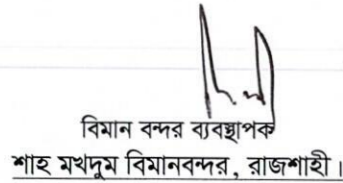 বিমান বন্দর ব্যবস্থাপক
শাহ মখদুম বিমানবন্দর, রাজশাহী।